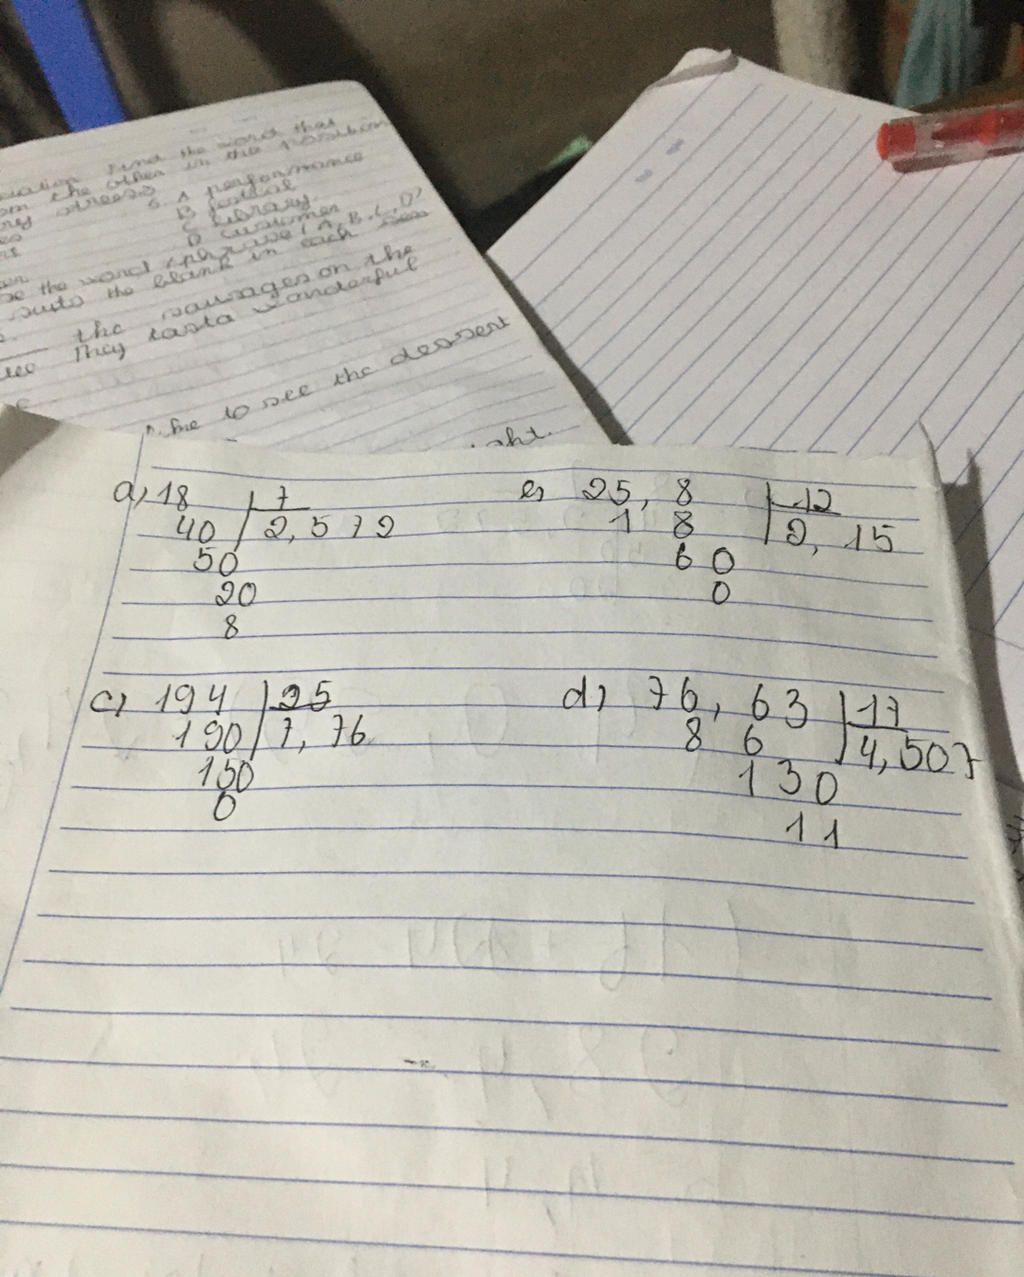 find the word that
the other in the position
stress
5. A performance
B festival
C library
D customer
the word / phrase (A, B, C, D)
suits the blank in each
the sausages on the
They tasta wonderful
me to see the dessert
a, 18 7
40 2, 5 7 2
50
20
8
e, 25, 8 12
1 8 2, 15
6 0
0
c, 194 25
190 7, 76
150
0
d, 76, 63 17
8 6 4, 507
1 3 0
1 1